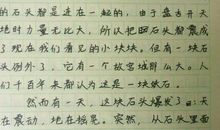 的石头都是连在一起的，由于盘古开天
地时力量无比大，所以把四石头都震成
了现在我们看见的小块块。但有一块石
头例外了，它有一个故宫城那么大。人
们千百年来都认为这是一块铁石。
然而有一天，这块石头爆发了。天
在震动，地在摇晃。突然，从石头里面